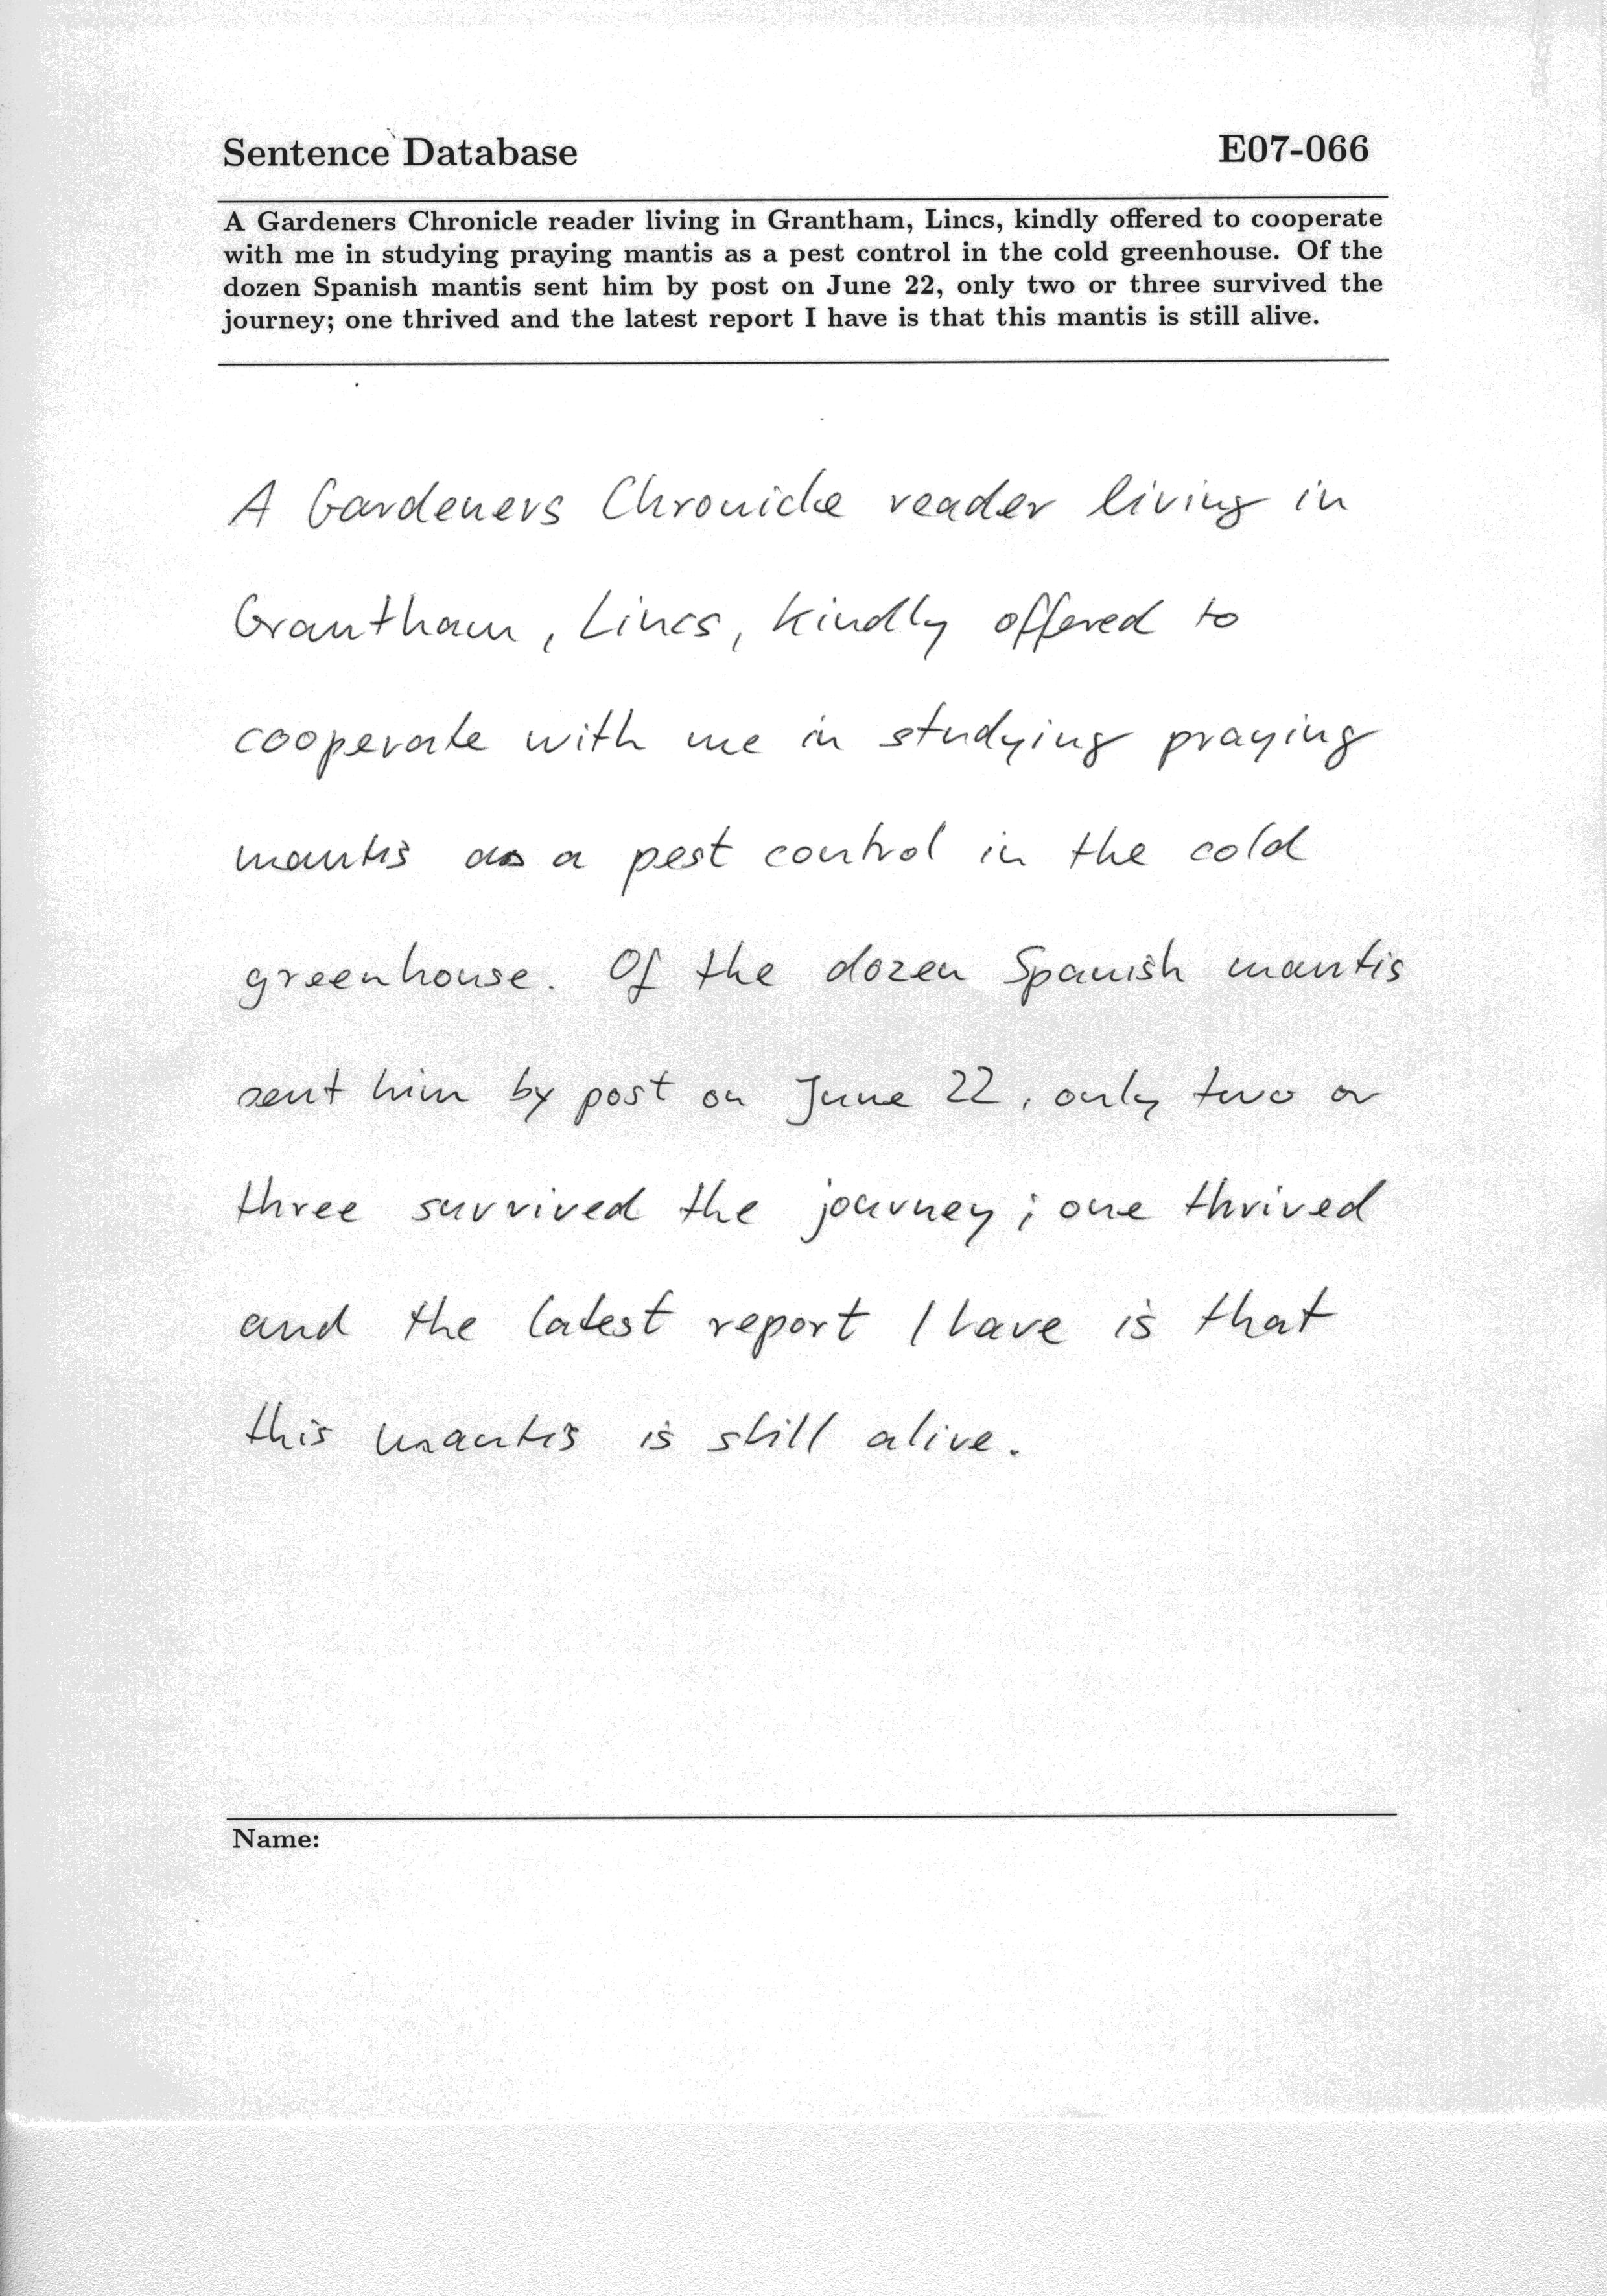 Sentence Database E07-066
A Gardeners Chronicle reader living in Grantham, Lincs, kindly offered to cooperate
with me in studying praying mantis as a pest control in the cold greenhouse. Of the
dozen Spanish mantis sent him by post on June 22, only two or three survived the
journey; one thrived and the latest report I have is that this mantis is still alive.
A Gardeners Chronicle reader living in
Grantham, Lincs, kindly offered to
cooperate with me in studying praying
mantis as a pest control in the cold
greenhouse. Of the dozen Spanish mantis
sent him by post on June 22, only two or
three survived the journey; one thrived
and the latest report I have is that
this mantis is still alive.
Name: